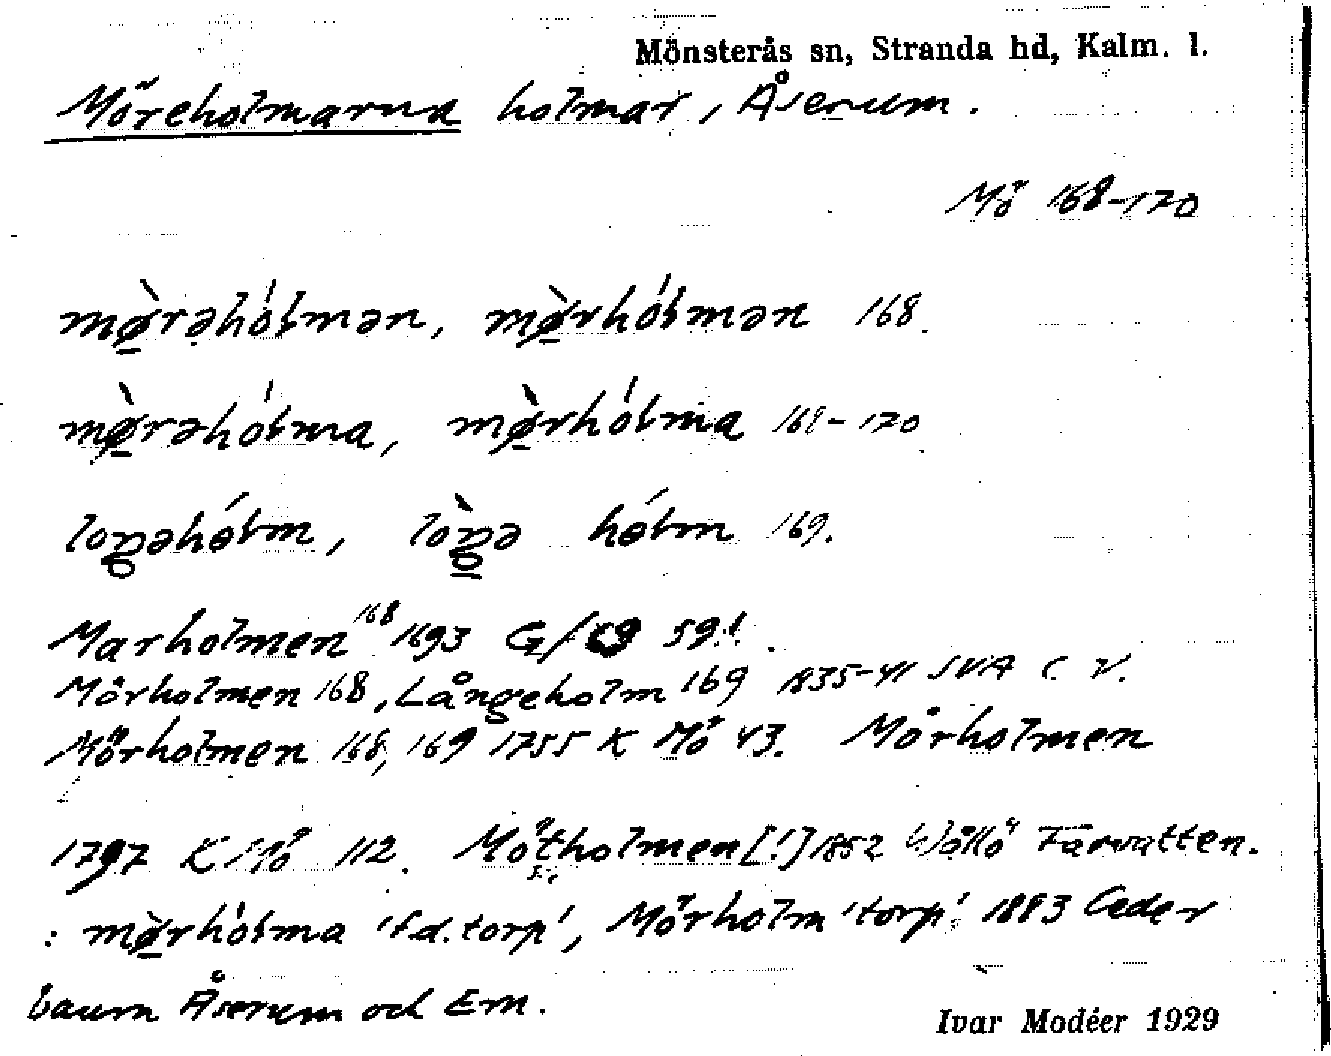 Mönsterås sn, Stranda hd, Kalm. l.
Möreholmarna holmar, Åserum.
Mö 168-170
mø̀rəhólmən, mø̀rhólmən 168.
mø̀rəhólma, mø̀rhólma 168-170
loŋəhólm, lòŋə hólm 169.
Marholmen 168 1693 G/ 59!.
Mörholmen 168, Långeholm 169 1835-41 SKA C. V.
Mörholmen 168, 169 1755 K Mö 43. Mörholmen
1797 K Mö 112. Mötholmen [!] 1852 Wållö Farvatten.
: mø̀rhólma 'f.d. torp', Mörholm 'torp' 1883 Ceder
baum Åserum och Em.
Ivar Modéer 1929